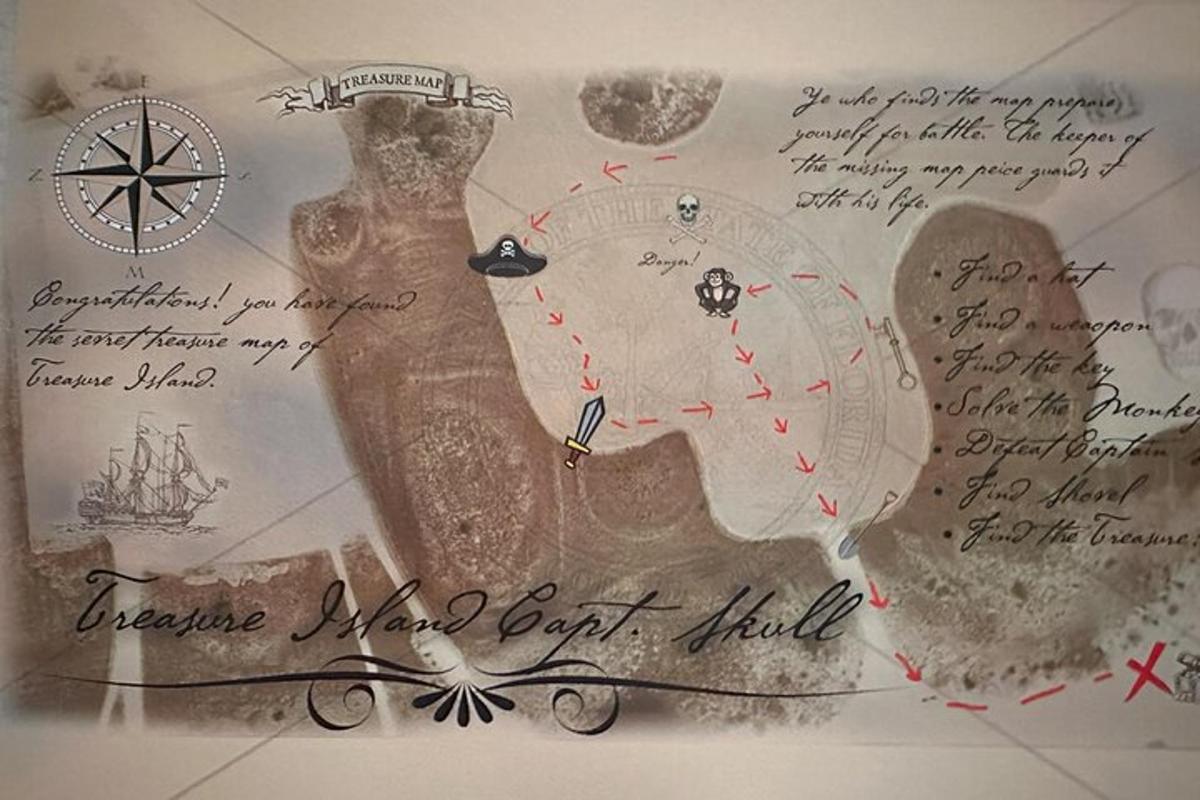 TREASURE MAP
E
M
Ye who finds the map prepares
yourself for battle. The keeper of
the missing map peice guards it
with his life.
Danger!
Congratulations! you have found
the secret treasure map of
Treasure Island.
• Find a hat
• Find a weaopon
• Find the key
• Solve the Monkey
• Defeat Captain
• Find Shovel
• Find the Treasure!
Treasure Island Capt. Skull